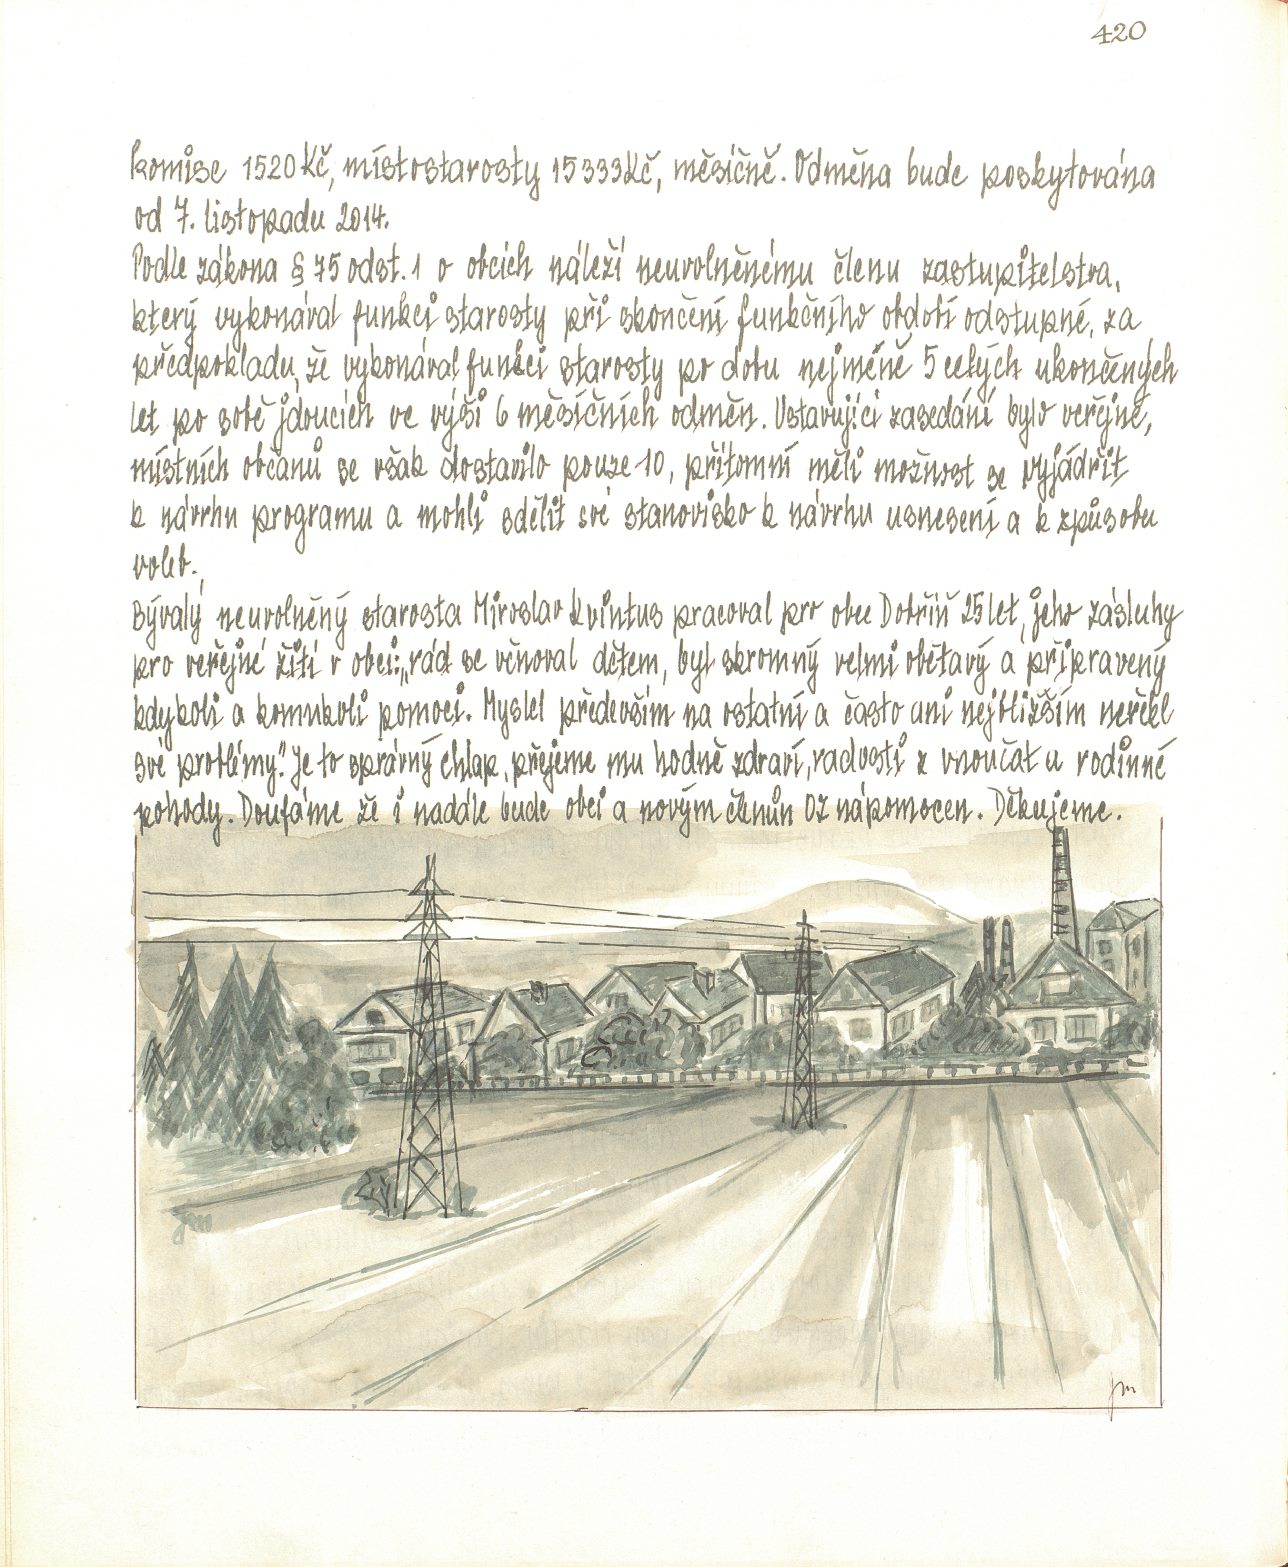 420
komise 1520 Kč, místostarosty 15 333 Kč, měsíčně. Odměna bude poskytována
od 7. listopadu 2014.
Podle zákona § 75 odst. 1 o obcích náleží neuvolněnému členu zastupitelstva,
který vykonával funkci starosty při skončení funkčního období odstupné, za
předpokladu, že vykonával funkci starosty po dobu nejméně 5 celých ukončených
let po sobě jdoucích ve výši 6 měsíčních odměn. Ustavující zasedání bylo veřejné,
místních občanů se však dostavilo pouze 10, přítomní měli možnost se vyjádřit
k návrhu programu a mohli sdělit své stanovisko k návrhu usnesení a k způsobu
voleb.
Bývalý neuvolněný starosta Miroslav Kvintus pracoval pro obec Dobříň 25 let, jeho zásluhy
pro veřejné žití v obci: „rád se věnoval dětem, byl skromný velmi obětavý a připravený
kdykoli a komukoli pomoci. Myslel především na ostatní a často ani nejbližším neřekl
své problémy." Je to správný chlap, přejeme mu hodně zdraví, radosti z vnoučat a rodinné
pohody. Doufáme že i nadále bude obci a novým členům OZ nápomocen. Děkujeme.
JM